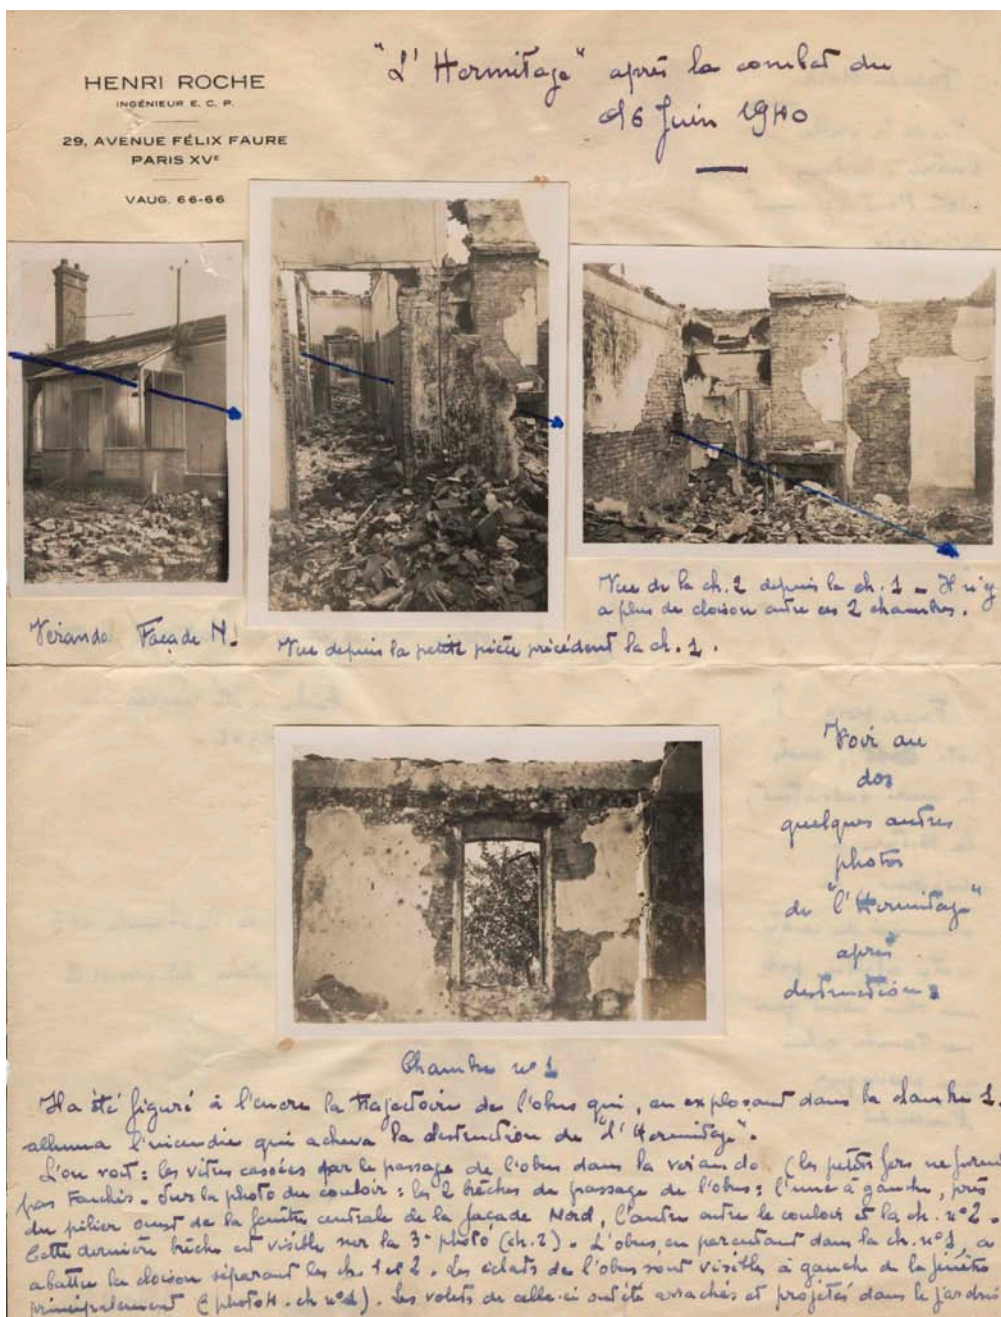 HENRI ROCHE
INGÉNIEUR E. C. P.
29, AVENUE FÉLIX FAURE
PARIS XVᴱ
VAUG. 66-66
"L'Hermitage" après le combat du
16 Juin 1940
Véranda Façade N.
Vue depuis la petite pièce précédent la ch. 1.
Vue de la ch. 2 depuis la ch. 1 - Il n'y
a plus de cloison entre ces 2 chambres.
Voir au
dos
quelques autres
photos
de "l'Hermitage"
après
destruction
Chambre nº 1
Il a été figuré à l'encre la trajectoire de l'obus qui, en explosant dans la chambre 1,
alluma l'incendie qui acheva la destruction de "l'Hermitage".
L'on voit : les vitres cassées par le passage de l'obus dans la véranda (les petits fers ne furent
pas fauchés - Sur la photo du couloir : les 2 brèches de passage de l'obus : l'une à gauche, près
du pilier ouest de la fenêtre centrale de la façade Nord, l'autre entre le couloir et la ch. nº 2 -
Cette dernière brèche est visible sur la 3ᵉ photo (ch. 2). L'obus, en percutant dans la ch. nº 1, a
abattu la cloison séparant les ch. 1 et 2. Les éclats de l'obus sont visibles à gauche de la fenêtre
principalement (photo 4. ch nº 1). Les volets de celle-ci ont été arrachés et projetés dans le jardin